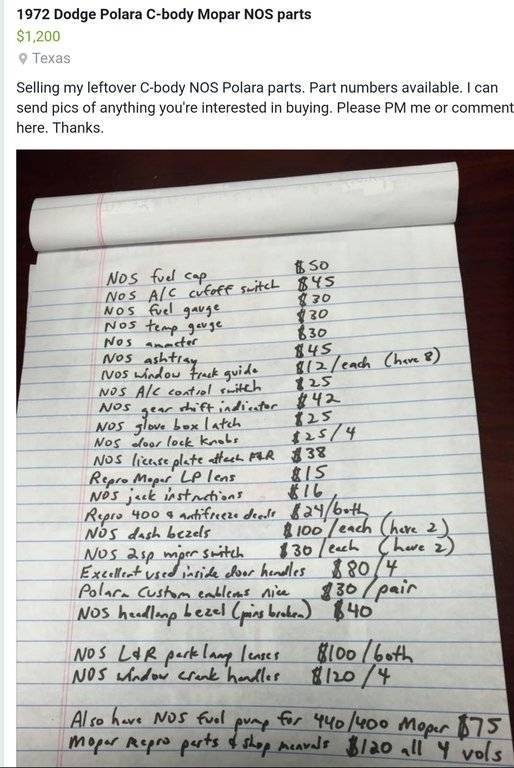 1972 Dodge Polara C-body Mopar NOS parts
$1,200
Texas
Selling my leftover C-body NOS Polara parts. Part numbers available. I can
send pics of anything you're interested in buying. Please PM me or comment
here. Thanks.
NOS fuel cap $50
NOS A/C cutoff switch $45
NOS fuel gauge $30
NOS temp gauge $30
NOS ammeter $30
NOS ashtray $45
NOS window track guide $12/each (have 8)
NOS A/C control switch $25
NOS gear shift indicator $42
NOS glove box latch $25
NOS door lock knobs $25/4
NOS license plate attach F&R $38
Repro Mopar LP lens $15
NOS jack instructions $16
Repro 400 & antifreeze decals $24/both
NOS dash bezels $100/each (have 2)
NOS 2sp wiper switch $30/each (have 2)
Excellent used inside door handles $80/4
Polara Custom emblems nice $30/pair
NOS headlamp bezel (pins broken) $40
NOS L&R park lamp lenses $100/both
NOS window crank handles $120/4
Also have NOS fuel pump for 440/400 Mopar $75
Mopar repro parts & shop manuals $120 all 4 vols